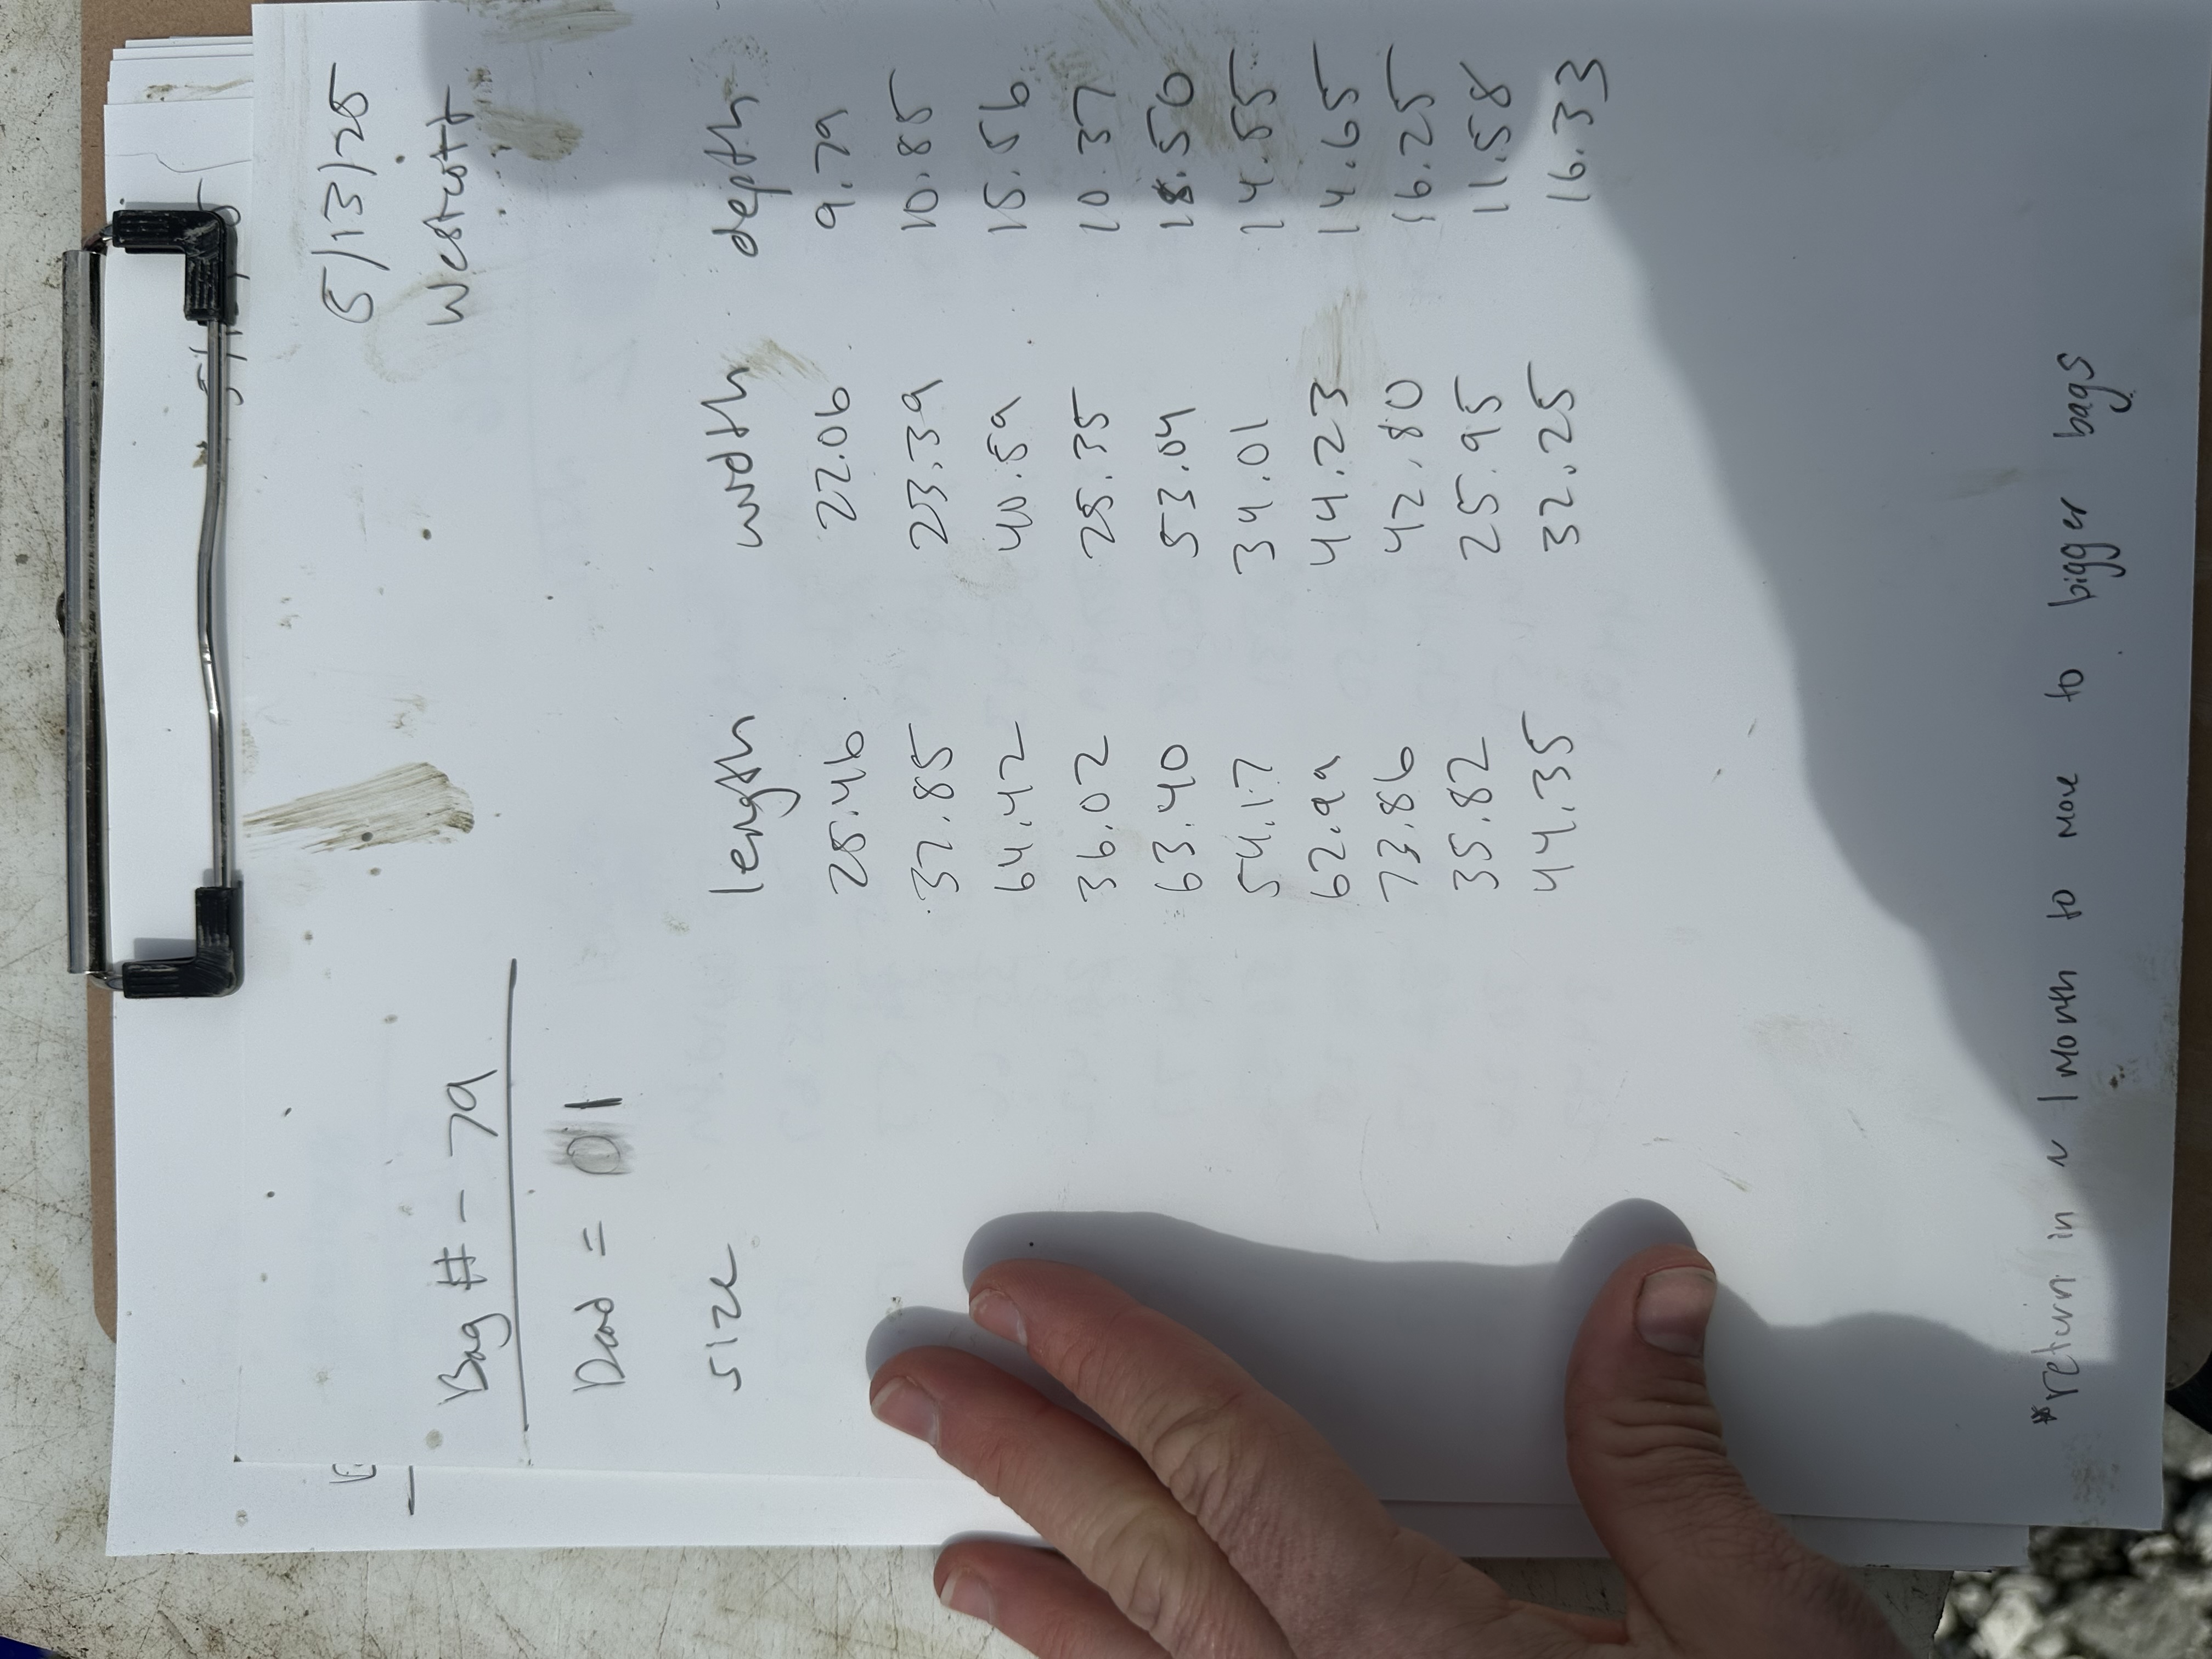 5/13/25
Westcott
Bag # - 79
Dead = 1
size length width depth
25.46 22.06 9.79
37.85 23.39 10.85
64.42 40.59 15.56
36.02 25.35 10.37
63.40 53.04 18.50
54.17 34.01 14.55
62.99 44.23 14.65
73.86 42.80 16.25
35.82 25.95 11.58
44.35 32.25 16.33
*return in ~ 1 month to move to bigger bags